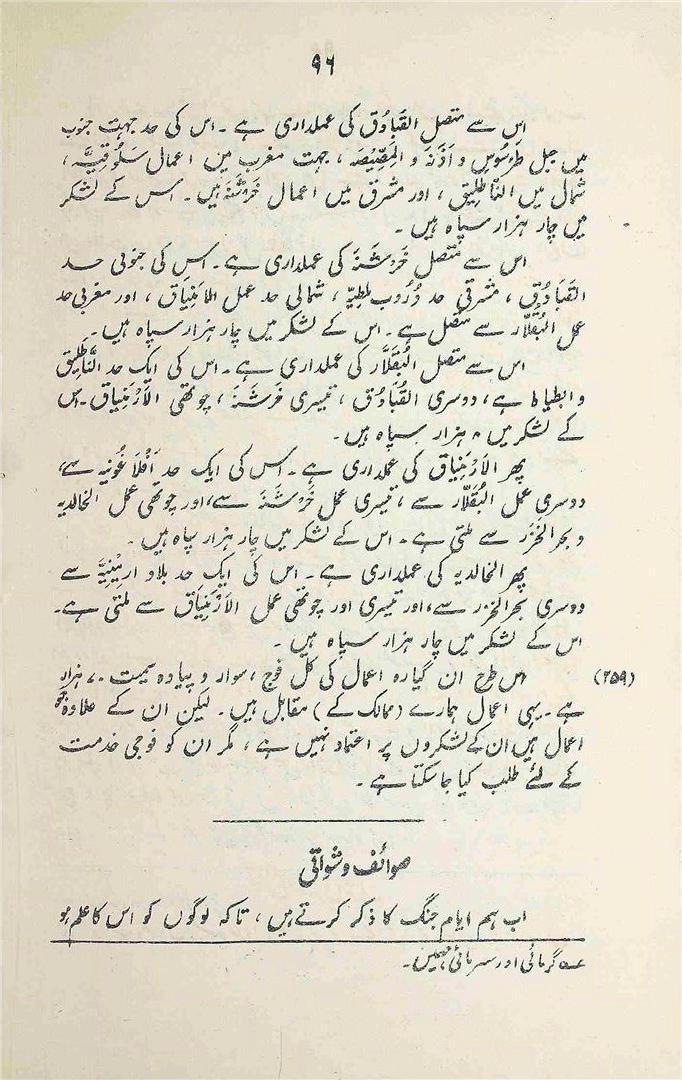 ۹۶
اس سے متصل القَبَادُق کی عملداری ہے ۔ اس کی حد جہت جنوب
میں جبل طَرَسُوس و اَذَنَہ و المَصِّیصَہ ، جہت مغرب میں اعمال سَلُوقِیَّہ ،
شمال میں النَّاطُلِیق ، اور مشرق میں اعمال خَرشَنَہ ہیں ۔ اس کے لشکر
میں چار ہزار سپاہ ہیں ۔
اس سے متصل خَرشَنَہ کی عملداری ہے ۔ اس کی جنوبی حد
القَبَادُق ، مشرقی حد دُرُوب مَلَطِیَّہ ، شمالی حد عمل الارْمَنِیَاق ، اور مغربی حد
عمل البُقَلَّار سے متصل ہے ۔ اس کے لشکر میں چار ہزار سپاہ ہیں ۔
اس سے متصل البُقَلَّار کی عملداری ہے ۔ اس کی ایک حد النَّاطُلِیق
و ابطیاط ہے ، دوسری القُبَادُق ، تیسری خَرشَنَہ ، چوتھی الاَرْمَنِیَاق ۔ اس
کے لشکر میں ۸ ہزار سپاہ ہیں ۔
پھر الاَرْمَنِیَاق کی عملداری ہے ۔ اس کی ایک حد اَفْلَاغُونِیہ سے ،
دوسری عمل البُقَلَّار سے ، تیسری عمل خَرشَنَہ سے ، اور چوتھی عمل الخالدیہ
و بحر الخَزَر سے ملتی ہے ۔ اس کے لشکر میں چار ہزار سپاہ ہیں ۔
پھر الخالدیہ کی عملداری ہے ۔ اس کی ایک حد بلاد ارمِینِیَّہ سے
دوسری بحر الخَزَر سے ، اور تیسری اور چوتھی عمل الاَرْمَنِیَاق سے ملتی ہے ۔
اس کے لشکر میں چار ہزار سپاہ ہیں ۔
(۲۵۹) اس طرح ان گیارہ اعمال کی کل فوج ، سوار و پیادہ سمیت ۷۰ ہزار
ہے ۔ یہی اعمال ہمارے (ممالک کے) مقابل ہیں ۔ لیکن ان کے علاوہ جو
اعمال ہیں ان کے لشکروں پر اعتماد نہیں ہے ، مگر ان کو فوجی خدمت
کے لئے طلب کیا جا سکتا ہے ۔
صوائف و شواتی
اب ہم ایام جنگ کا ذکر کرتے ہیں ، تاکہ لوگوں کو اس کا علم ہو
عہ گرمائی اور سرمائی مہمیں ۔